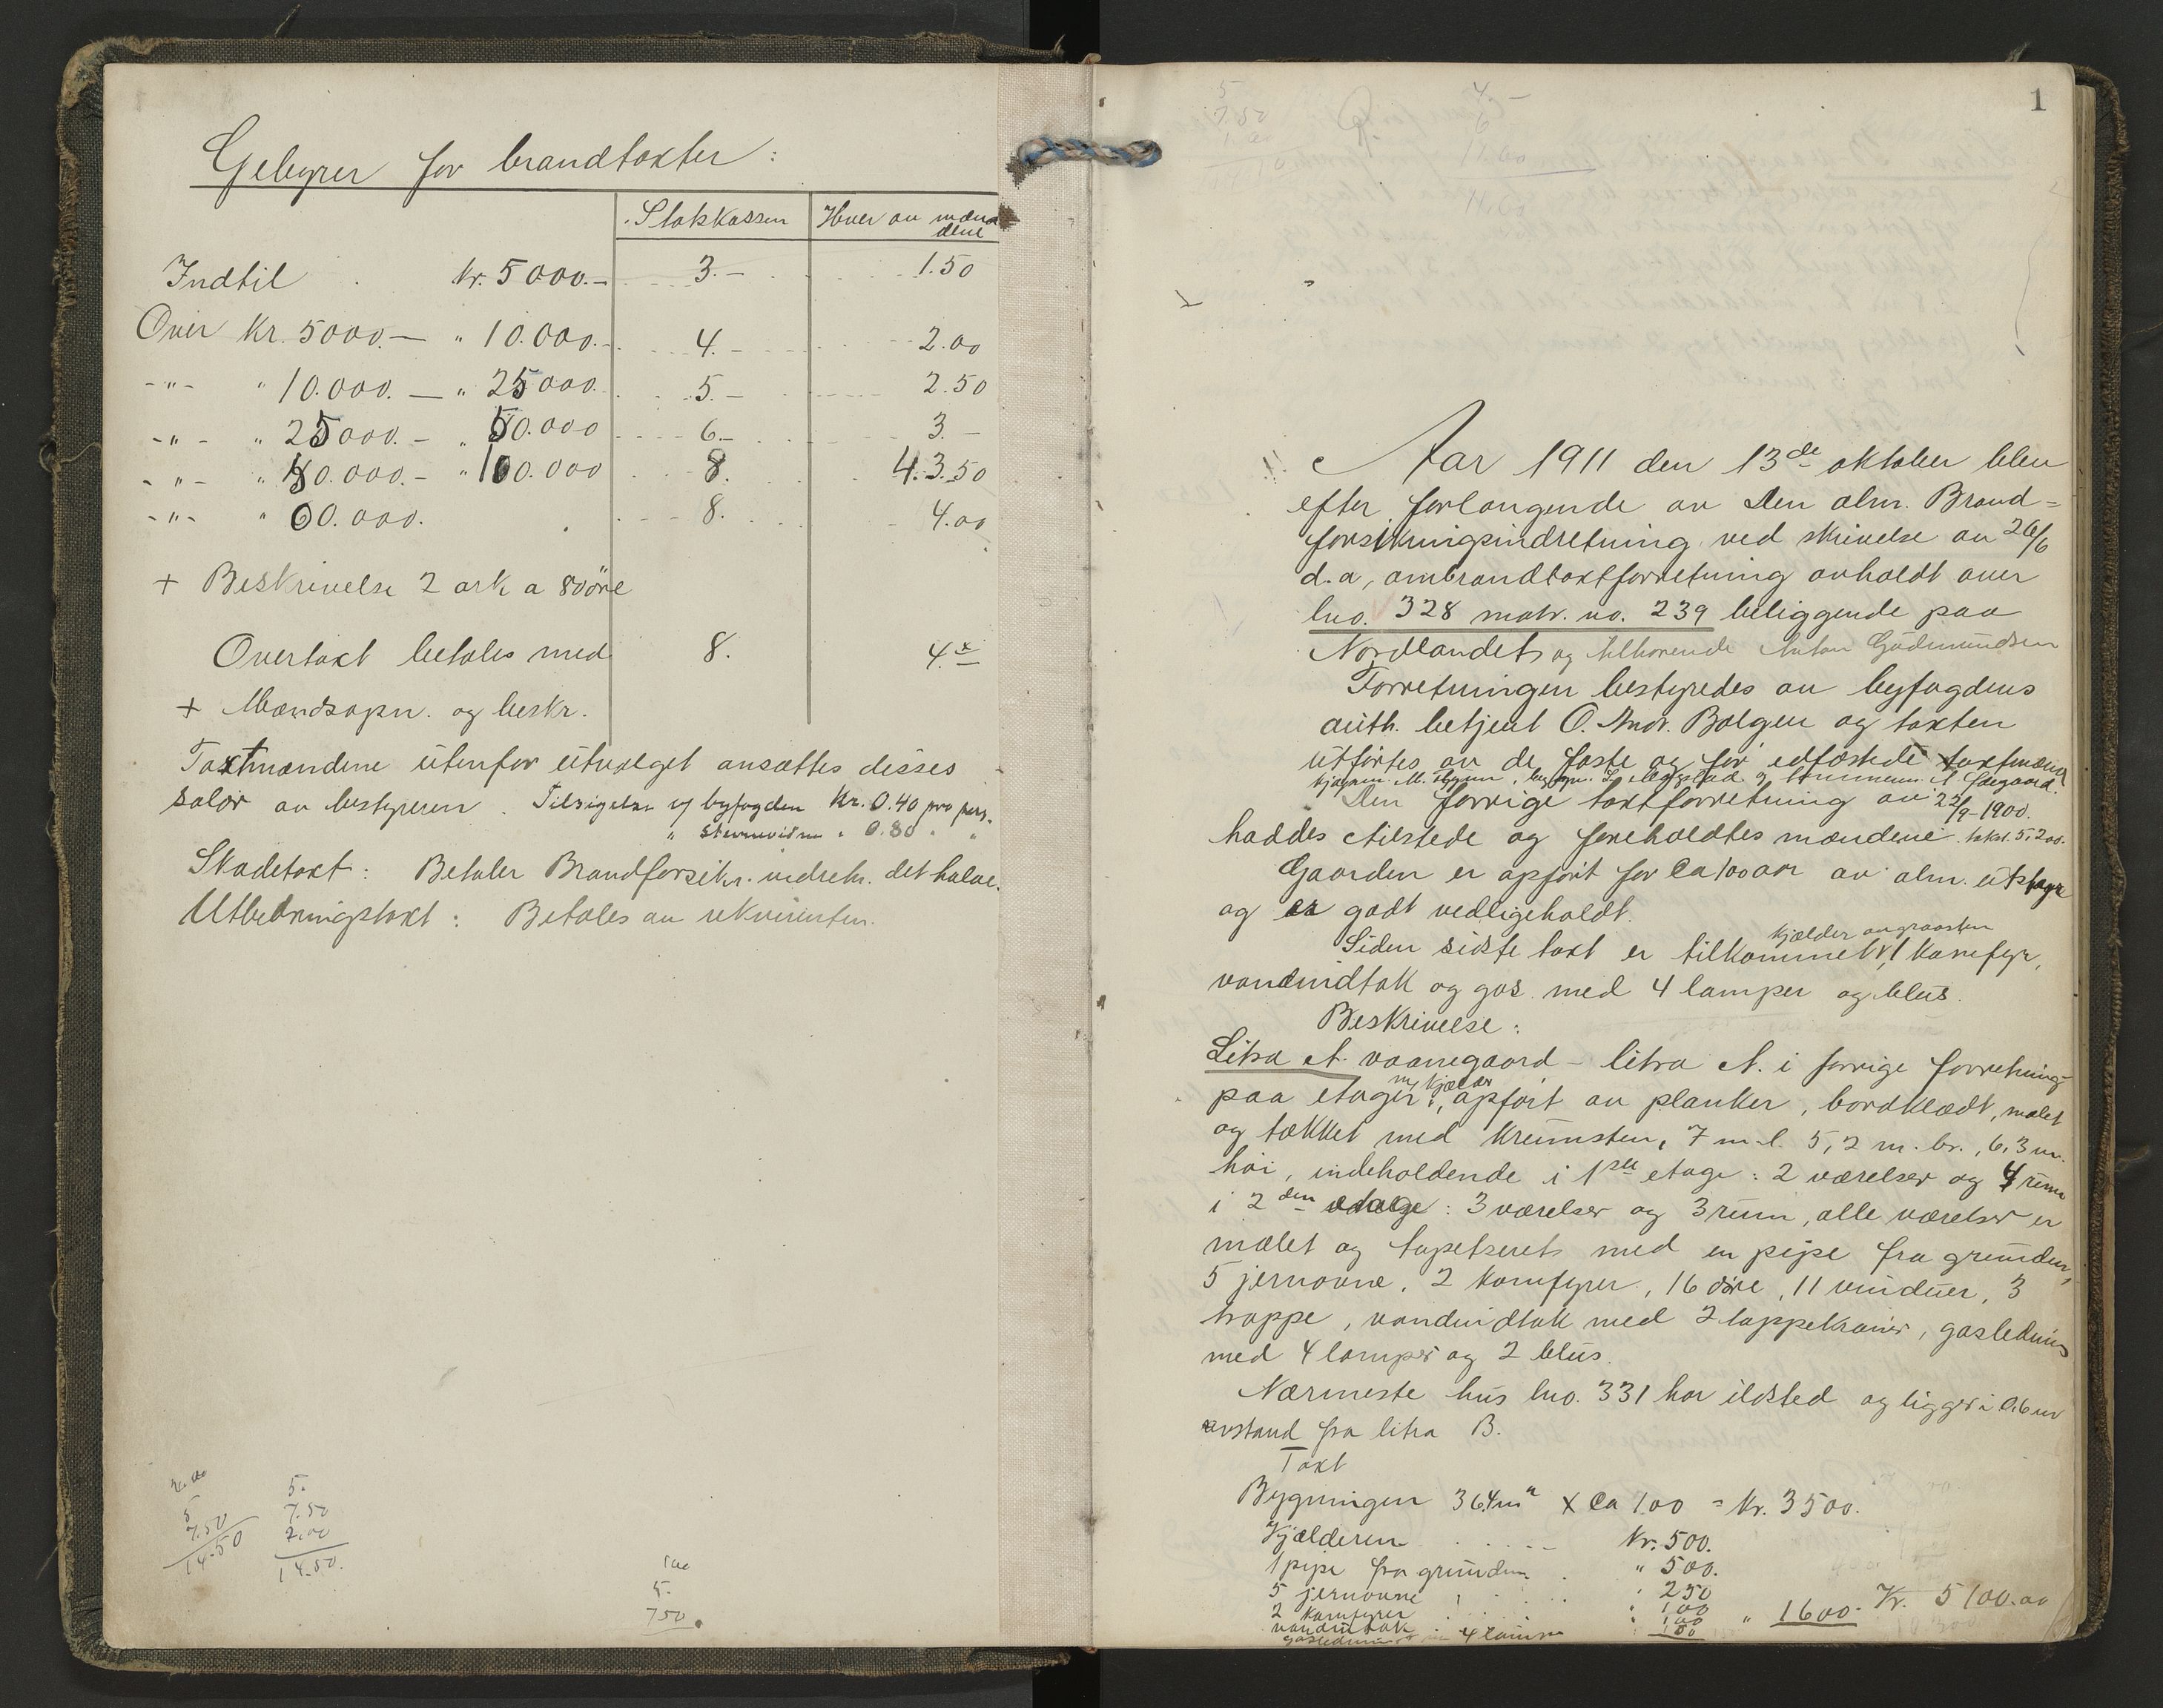 Gebyrer for brandtakster:
Statskassen Hver av mæn-
dene
Indtil kr. 5000.- 3.- 1.50
Over kr. 5000.- " 10.000.- 4.- 2.00
-"- " 10.000.- " 25000. 5.- 2.50
-"- " 25000.- " 50.000 6.- 3.-
-"- " 50.000.- " 100.000 8. 4. 3.50
-"- " 60.000. 8. 4.00
+ Beskrivelse 2 ark a 80 øre
Overtakst betales med 8. 4.
+ Mandsopn. og beskr.
Takstmændene utenfor utvalget ansættes disses
salær av bestyreren. Tilsigelse af byfogden kr. 0.40 pro pers.
" Stevnevidne " 0.80 " "
Skadetakst: Betaler Brandforsikr. indretn. det halve.
Utbedringstakst: Betales av rekvirenten.
2.00
5
7.50
14.50
5.
7.50
2.00
14.50.
100
5.
750.
1
Aar 1911 den 13de oktober blev
efter forlangende av Den alm. Brand=
forsikringsindretning ved skrivelse av 26/6
d.a, ombrandtakstforretning avholdt over
lno. 328 matr. no. 239 beliggende paa
Nordlandet og tilhørende Anton Gudmundsen
Forretningen bestyredes av byfogdens
auth. betjent O. Andr. Bolgen og taksten
utførtes av de faste og før edfæstede takstmænd
Den forrige takstforretning av 22/9-1900.
haddes tilstede og foreholdtes mændene. takst. 5,200.
Gaarden er opført for ca 100 aar av alm.
og er godt vedligeholdt.
kjælder av graasten
Siden sidste takst er tilkommet, 1 komfyr,
vandindtak og gas med 4 lamper og blus.
Beskrivelse:
Litra A. vaanegaard - litra A. i forrige forretning
ny kjælder
paa etager, opført av planker, bordklædt, malet
og tækket med krumsten, 7 m. l. 5,2 m. br., 6,3 m.
høi, indeholdende i 1ste etage: 2 værelser og 4 rum
i 2den etage: 3 værelser og 3 rum, alle værelser er
malet og tapetseret med en pipe fra grunden,
5 jernovne, 2 komfyrer, 16 døre, 11 vinduer, 3
trappe, vandindtak med 2 tappekraner, gasledning
med 4 lamper og 2 blus.
Nærmeste hus lno. 331 har ildsted og ligger i 0.6 m
avstand fra litra B.
Takst
Bygningen 36.4 m² x ca 100 = kr. 3500.
Kjælderen kr. 500.
1 pipe fra grunden " 500.
5 jernovne " 250
2 komfyrer " 100
vandindtak " 100 " 1600.- Kr. 5100.00
gasledning 4 lamper